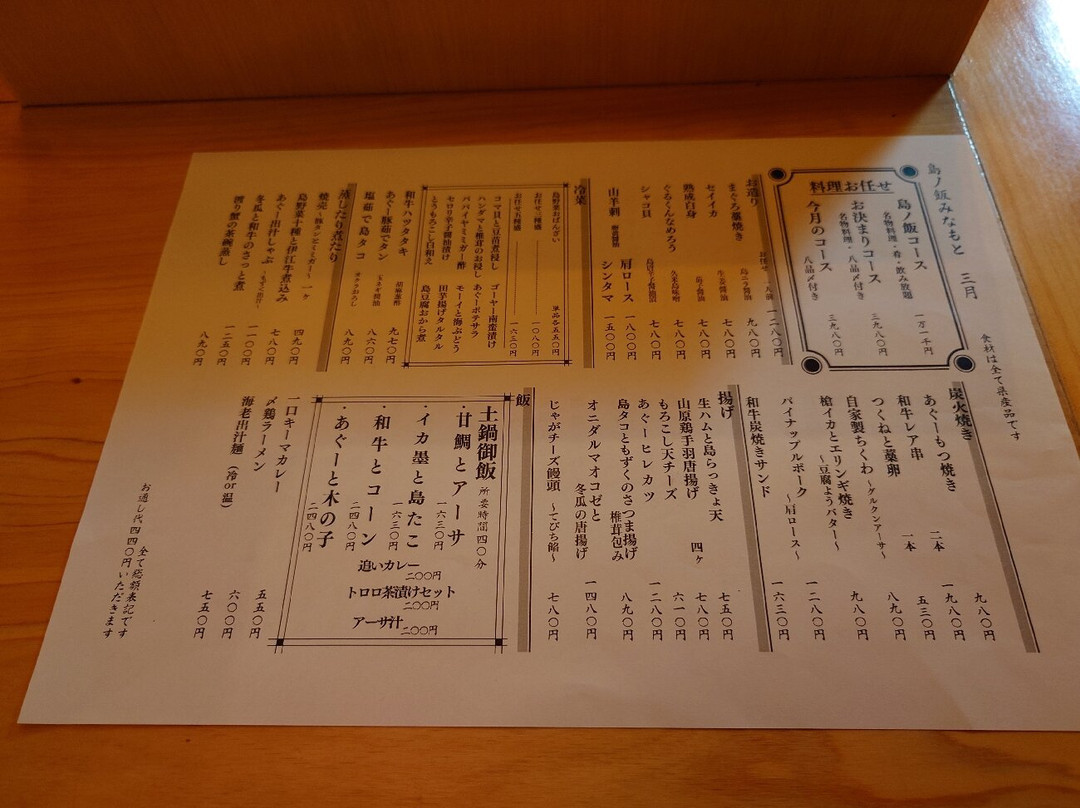 島ノ飯みなもと 三月
食材は全て県産品です
料理お任せ
島ノ飯コース
名物料理・肴・飲み放題
一万一千円
お決まりコース
名物料理・八品〆付き
三九八〇円
今月のコース
八品〆付き
三九八〇円
お造り
お任せ 一人前 一二八〇円
まぐろ藁焼き 島ニラ醤油 九八〇円
セイイカ 生姜醤油 七八〇円
熟成白身 島辛子醤油 七八〇円
ぐるくんなめろう 久米島味噌 七八〇円
シャコ貝 島唐辛子醤油 七八〇円
山羊刺
肩ロース 一八〇〇円
シンタマ 一五〇〇円
冷菜
島野菜おばんざい 単品各五五〇円
お任せ三種盛 一〇八〇円
お任せ五種盛 一六三〇円
コマ貝と豆苗煮浸し
ハンダマと椎茸のお浸し
パパイヤとミミガー酢
セロリ辛子醤油漬け
とうもろこし白和え
ゴーヤー南蛮漬け
あぐーポテサラ
モーイと海ぶどう
田芋揚げタルタル
島豆腐おから煮
和牛ハツタタキ 胡麻薬酢 九七〇円
あぐー豚茹でタン 玉ネギ醤油 八六〇円
塩茹で島タコ オクラおろし 八九〇円
蒸したり煮たり
焼売〜豚タンとミミガー〜 一ヶ 四九〇円
島野菜十種と伊江牛煮込み 七八〇円
あぐー出汁しゃぶ 一一〇〇円
冬瓜と和牛のさっと煮 一二五〇円
渡り蟹の茶碗蒸し 八九〇円
炭火焼き
あぐーもつ焼き 二本 九八〇円
和牛レア串 一本 一九八〇円
つくねと薬卵 五三〇円
自家製ちくわ〜グルクンアーサ〜 八九〇円
槍イカとエリンギ焼き〜豆腐ようバター〜 九八〇円
パイナップルポーク〜肩ロース〜 一二八〇円
和牛炭焼きサンド 一六三〇円
揚げ
生ハムと島らっきょ天 七五〇円
山原鶏手羽唐揚げ 四ヶ 七八〇円
もろこし天チーズ 六一〇円
あぐーヒレカツ 一二八〇円
島タコともずくのさつま揚げ椎茸包み 八九〇円
オニダルマオコゼと冬瓜の唐揚げ 一四八〇円
じゃがチーズ饅頭〜てびち餡〜 七八〇円
飯
土鍋御飯 所要時間四〇分
・甘鯛とアーサ 一六三〇円
・イカ墨と島たこ 一六三〇円
・和牛とコーン 二四八〇円
・あぐーと木の子 二四八〇円
追いカレー 二〇〇円
トロロ茶漬けセット 二〇〇円
アーサ汁 二〇〇円
一口キーマカレー 五五〇円
〆鶏ラーメン 六〇〇円
海老出汁麺(冷or温) 七五〇円
全て総額表記です
お通し代四四〇円いただきます